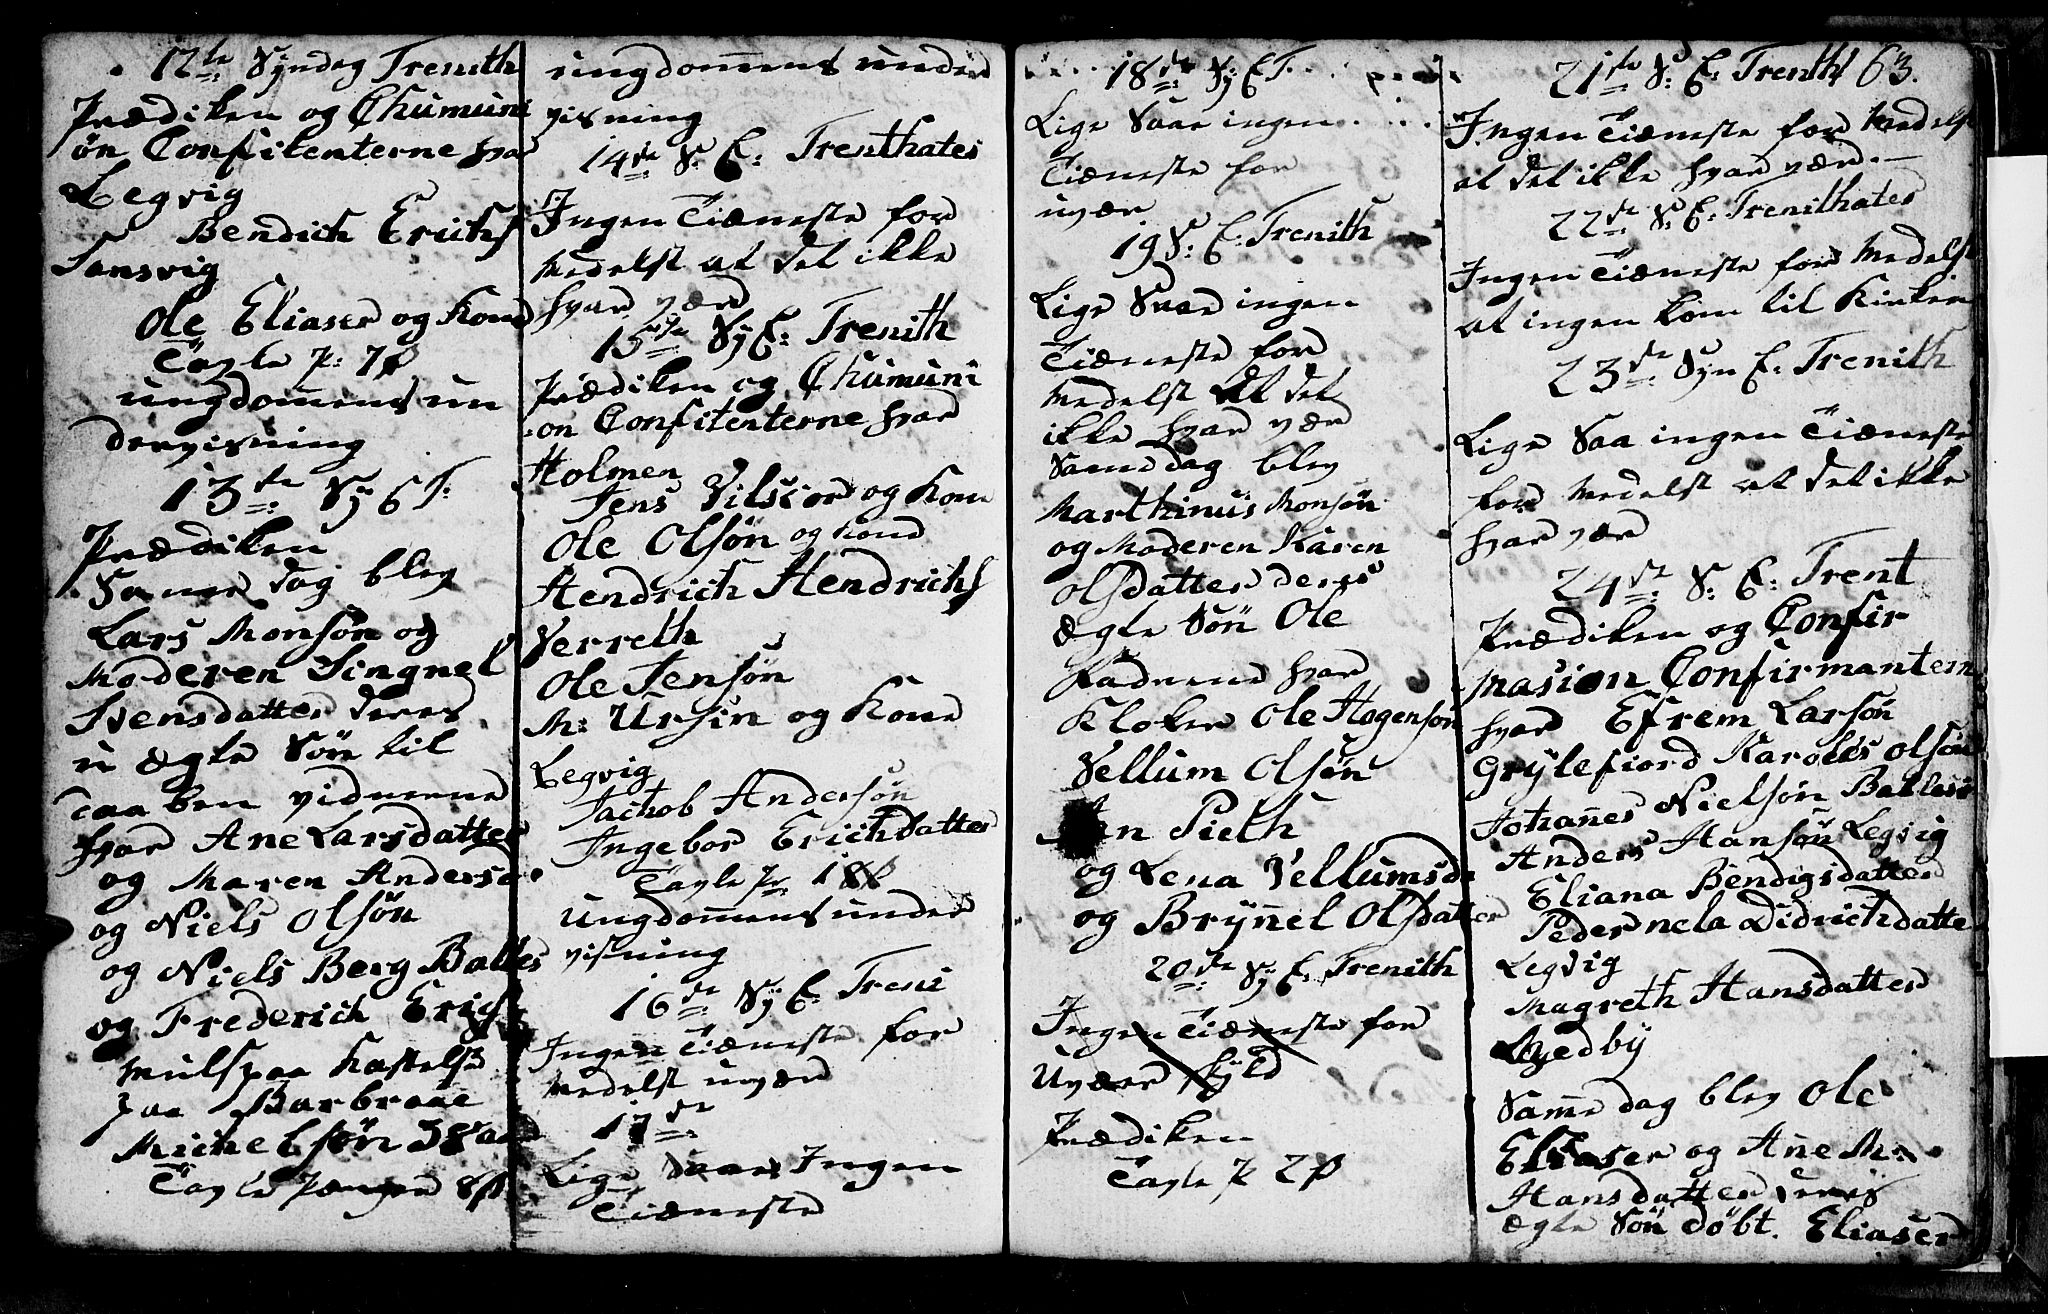 12te Syndag Trenith
Prædiken og Chumuni
øn Confitenterne hvar
Legvig
Bendich Erichs
Sansvig
Ole Eliaser og Kone
Tavle p: 7 ß
ungdommens un
dervisning
13de Sy E T:
Prædiken
Samme dag blev
Lars Monsøn og
Moderen Singnel
Svensdatter deres
u ægte Søn til
Daaben vidnerne
hvar Ane Larsdatter
og Maren Anders
og Niels Olsøn
og Niels Berg Baltes
og Frederich Erigs
paa Barbraae
Michelsøn 38 aar
Tavle Penger 8 ß
ungdommens under
visning
14de S: E: Trenthates
Ingen Tiæneste for
Medelst at det ikke
hvar vær
15de Sy E: Trenith
Prædiken og Chumuni
on Confitenterne hvar
Holmen
Jens Vilsior og Kone
Ole Olsøn og Kone
Hendrich Hendrichs
Verreth
Ole Jensøn
M: Ursin og Kone
Legvig
Jachob Andersøn
Ingebor Erichdatter
Tavle p 18 ß
Ungdommens under
visning
16de Sy E: Treni
Ingen Tiæneste for
Medelst uvær
17de
Lige Saa Ingen
Tiæneste
18de Sy E T.
Lige Saa ingen
Tiæneste for
uvær
19 S: E: Trenith
Lige Saa ingen
Tiæneste for
Medelst at det
ikke hvar vær
Samme dag blev
Marthinus Monsøn
og Moderen Karen
Olsdatter deres
Ægte Søn Ole
Fadrene hvar
Kloker Ole Hogensøn
Vellum Olsøn
Pieth
og Lena Vellumsd
og Brynel Olsdatter
20de Sy E: Trenith
Ingen Tiæneste for
Uvær skyld
Prædiken
Tavle p 2 ß
21de S: E: Trenth 63.
Ingen Tiæneste for Medelst
at det ikke hvar vær
22de S: E: Trenithates
Ingen Tiæneste for Medelst
at ingen kom til Kirken
23de Syn E: Trenith
Lige Saa ingen Tiæneste
for Medelst at det ikke
hvar vær
24de S: E: Trent
Prædiken og Confir
masion Confirmantern
hvar Efrem Larsøn
Grylefiord Karolus Olsøn
Johannes Nielsøn
Anders Hansøn Legvig
Eliana Bendigsdatter
Pedernela Didrichdatte
Legvig
Magreth Hansdatter
Samme dag blev Ole
Eliaser og Ane M:
Hansdatter deres
Ægte Søn døbt. Eliaser